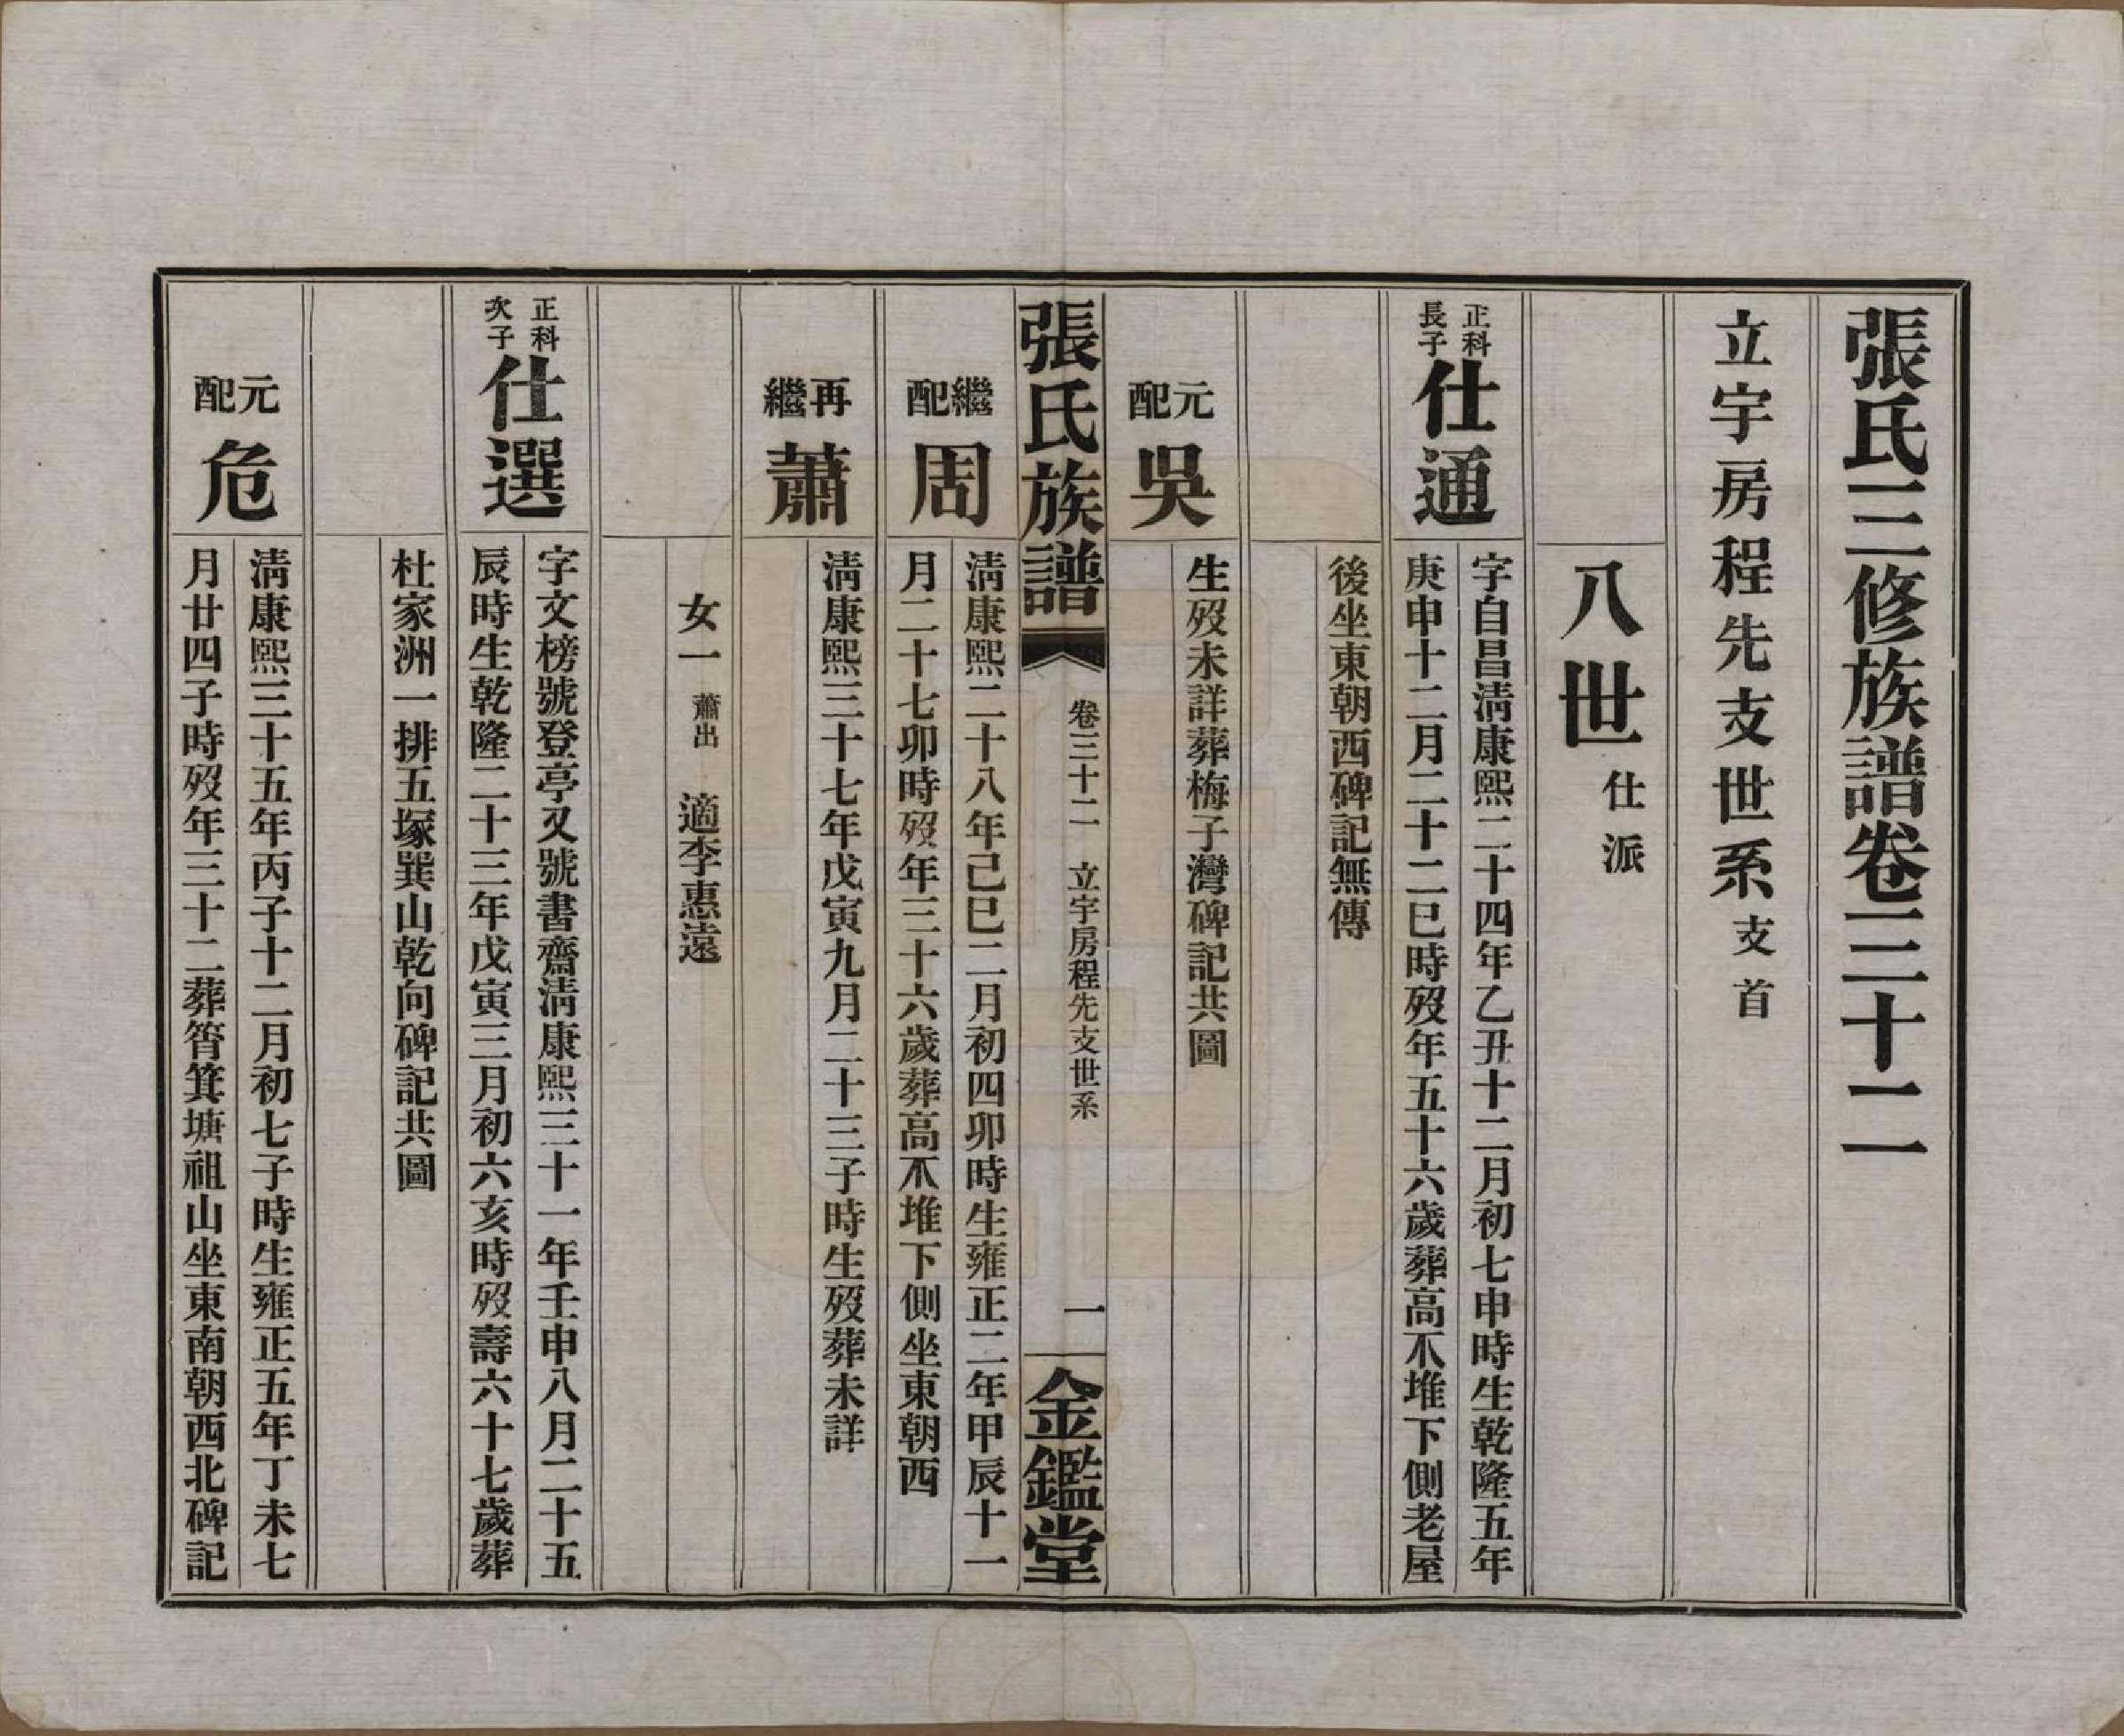 張氏三修族譜卷三十二
立宇房程先支世系支首
八世仕派
正科長子仕通
字自昌清康熙二十四年乙丑十二月初七申時生乾隆五年
庚申十二月二十二巳時歿年五十六歲葬高不堆下側老屋
後坐東朝西碑記無傳
元配吳
生歿未詳葬梅子灣碑記共圖
張氏族譜 卷三十二 立宇房程先支世系 一 金鑑堂
繼配周
清康熙二十八年己巳二月初四卯時生雍正二年甲辰十一
月二十七卯時歿年三十六歲葬高不堆下側坐東朝西
再繼蕭
清康熙三十七年戊寅九月二十三子時生歿葬未詳
女一蕭出 適李惠遠
正科次子仕選
字文榜號登亭又號書齋清康熙三十一年壬申八月二十五
辰時生乾隆二十三年戊寅三月初六亥時歿壽六十七歲葬
杜家洲一排五塚巽山乾向碑記共圖
元配危
清康熙三十五年丙子十二月初七子時生雍正五年丁未七
月廿四子時歿年三十二葬筲箕塘祖山坐東南朝西北碑記